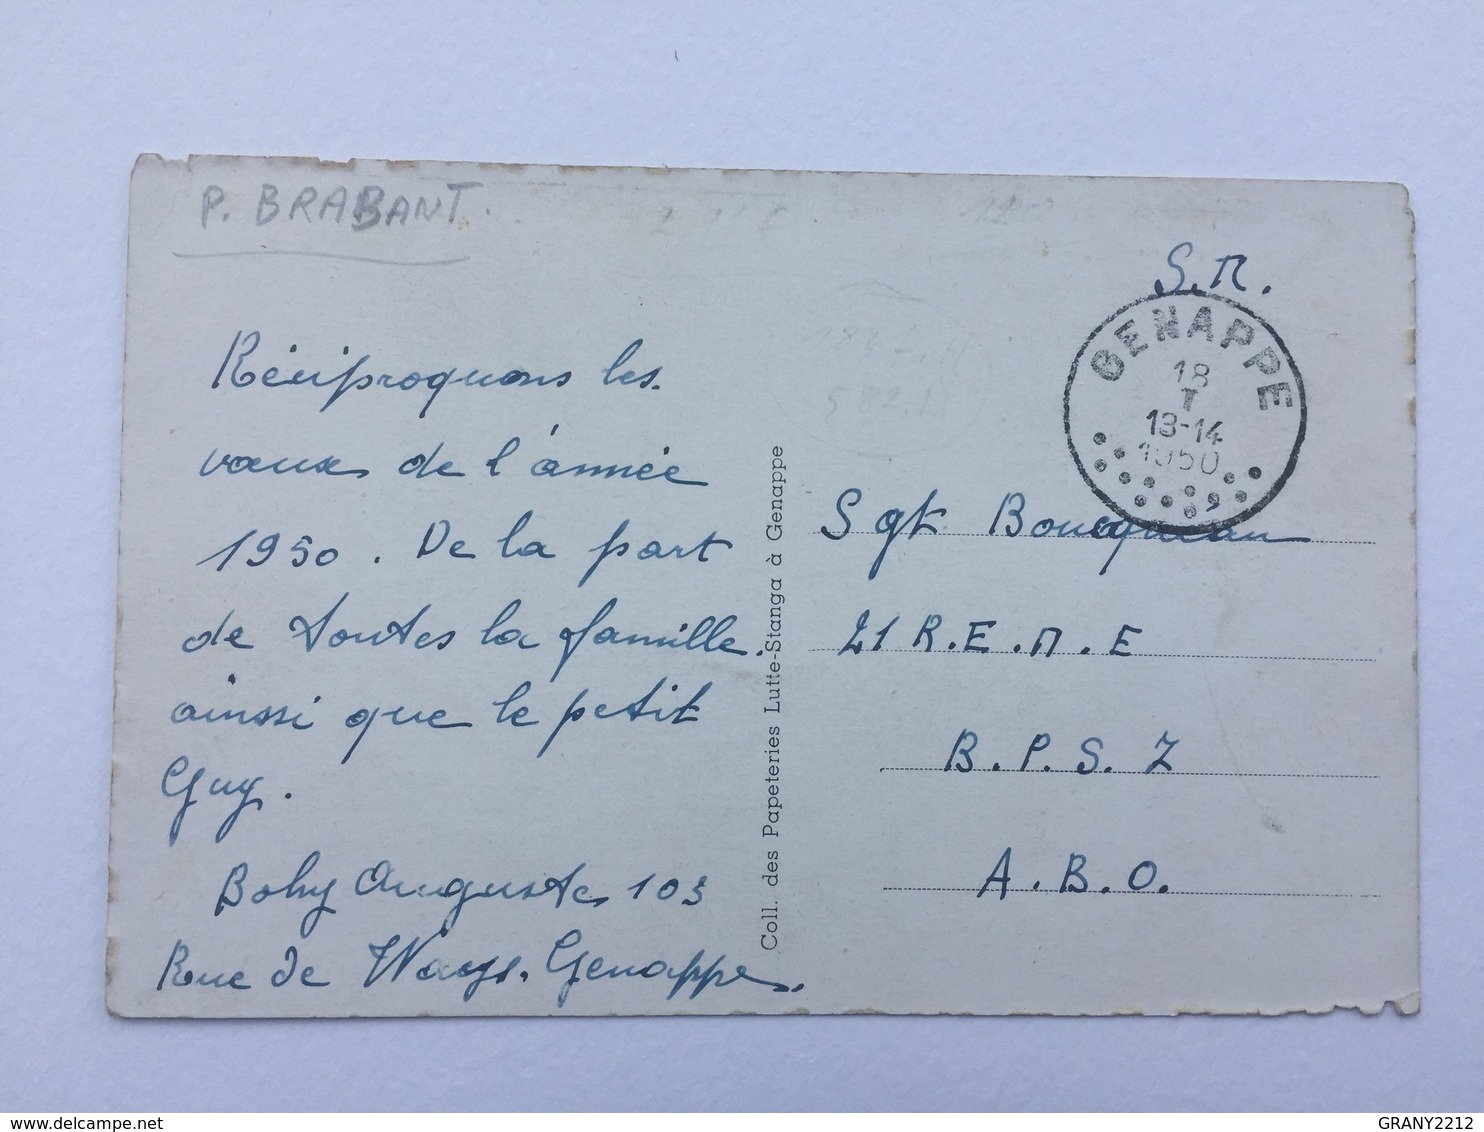 P. BRABANT.
Réciproquons les
vœux de l'année
1950. De la part
de toutes la famille.
ainsi que le petit
Guy.
Bohy Auguste 103
Rue de Ways. Genappe.
Coll. des Papeteries Lutte-Stanga à Genappe
S.M.
GENAPPE
18
I
13-14
1950
Sgt Boucqueau
21 R.E.M.E
B.P.S. 7
A.B.O.
delcampe.net
GRANY2212